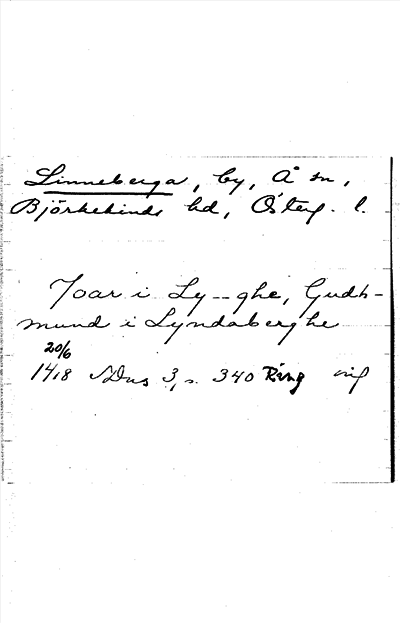 Linneberga, by, Å sn,
Björkekinds hd, Österg. l.
Joar i Ly--ghe, Gudh-
mund i Lyndaberghe
20/6
1418 SDns 3, s. 340 Ring orig